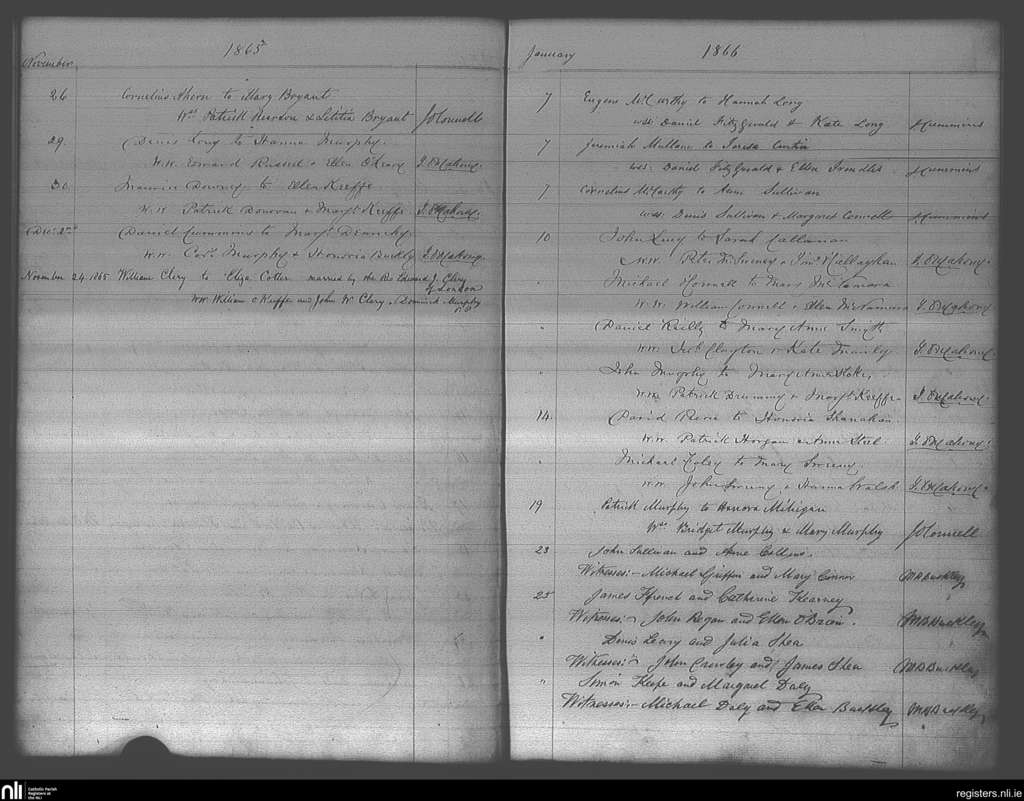 1865
November
26 Cornelius Ahern to Mary Bryant
Wss Patrick Riordon & Letitia Bryant J O Connell
29. Denis Long to Hanna Murphy.
W.W. Edward Russel & Ellen O Leary J. O'Mahony.
30. Maurice Downey to Ellen Keeffe
W.W Patrick Donovan & Margt Keeffe J. O'Mahony.
Dec. 2nd Daniel Cummins to Margt
W.W. Corns Murphy & Honoria Buckly J. O'Mahony.
November 24 1865 William Clery to Eliza Cotter married by the Rev Edward J. Clery
of London
WW William O Keeffe and John W Clery. Dominick Murphy
1866
January
7 Eugene McCarthy to Hannah Long
wss. Daniel FitzGerald & Kate Long J Cummins
7 Jeremiah Mullane to Teresa Curtin
wss. Daniel FitzGerald & Ellen J Cummins
7 Cornelius McCarthy to Anne Sullivan
wss. Denis Sullivan & Margaret Connell J Cummins
10 John Lucy to Sarah Callanan
W.W. Peter McSweeney & O'Mahony
" Michael to Mary McNamara
W.W. William Connell & Ellen McNamara J. O'Mahony
" Daniel Reilly to Mary Anne Smyth
WW. Clayton & Kate J. O'Mahony.
" John Murphy to Mary Anne
WW Patrick & Margt Keeffe J. O'Mahony.
14. David to Honoria Shanahan.
W.W. Patrick Horgan & Anne J. O'Mahony.
" Michael Foley to Mary Sweeny.
WW. John Sweeny & Hanna Walsh J. O'Mahony.
19 Patrick Murphy to Honora Mihigan
Wss Bridget Murphy & Mary Murphy J O Connell
23 John Sullivan and Anne Collins.
Witnesses:- Michael Griffin and Mary Connor M B Buckley
25 James Ffrench and Catherine Kearney
Witnesses:- John Regan and Ellen O'Brien. M B Buckley
" Denis Leary and Julia Shea
Witnesses:- John Crowley and James Shea M B Buckley
" Simon Keefe and Margaret Daly
Witnesses:- Michael Daly and Ellen Buckley M B Buckley
nli Catholic Parish
Registers at
the NLI
registers.nli.ie